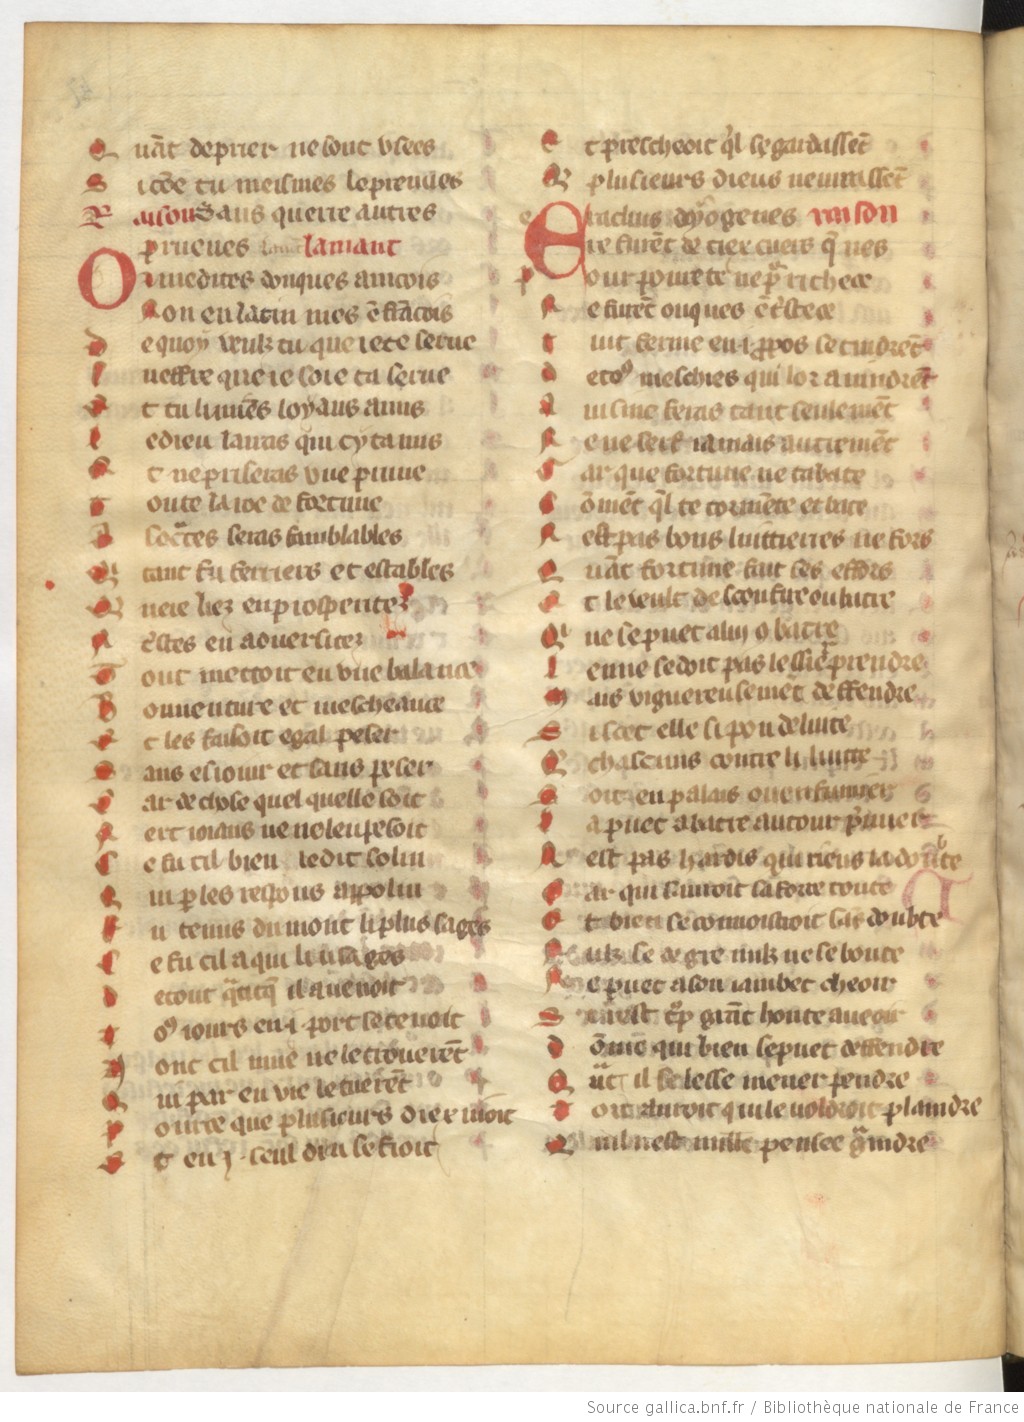 Quāt de prier ne sont usees
Si cōe tu meismes le preuues
Raison sans querre autres
preuues lamant
Or me dites donques amcois
Non en latin mes ē frācois
De quoy veulz tu que ie te serue
Sueffre que ie soie ta serue
Et tu li miēs loyaus amis
Le dieu lairas qui cy ta mis
Et ne priseras vne prune
Toute la roe de fortune
A socᵃtes seras samblables
Qui tant fu ferriers et estables
Quere liez en prosperitez
Ne tⁱstes en aduersitez
Tout mettoit en vne balance
Bonne auture et mescheance
Et les faisoit egal peser
Sans esiouir et sans peser
Car de chose quel quelle soit
Nert ioians ne ne len pesoit
Ce fu cil bien le dit solin
Qui p les respons appolin
Fu tenus du mont li plus sages
Ce fu cil a qui li uisages
De tout q̄ᵃtq̄ il auenoit
Toꝰ iours en .i. port se tenoit
Nont cil mue ne le trouerēt
Qui par en vie le tuerēt
Pource que plusieurs diex nioit
Et en .j. seul dieu se fioit
Et prescheoit q̄l se gardassēt
Q plusieurs dieus ne iurassēt
Eraclius dyogenes raison
Re furēt de tiex cuers q̄ nes
Pour pourete ne pʳ richece
Ne furēt onques ē tⁱstece
Tuit ferme en .i. ppos se tindrēt
De toꝰ meschies qui lor auindrēt
Ainsinc feras tant seulemēt
Ne me serf iamais autremēt
Gar que fortune ne tabate
Cōmēt q̄l te tormēte et bate
Nest pas bons luittierres ne fors
Quāt fortune fait ses effors
Et le veult desconfire ou batre
Qui ne se puet a luy ɔbatre
Len ne se doit pas lessier prendre
Mais viguereusemēt deffendre
Si scet elle si pou de luite
Q chascuns contre li luitte
Soit en palais ou en fumier
La puet abatre au tour pⁱmier
Nest pas hardis qui riens la doubte
Car qui sauroit sa force toute
Et bien se connoistroit sās doubte
Nulz se de gre nulz ne se boute
Ne puet a son iambet cheoir
Si rest tʳop grāt honte a ueoir
Dōme qui bien se puet deffendre
Quāt il se lesse mener pendre
Tort auroit qui le uoldroit plaindre
Quil nest nulle pensee gʳaindre